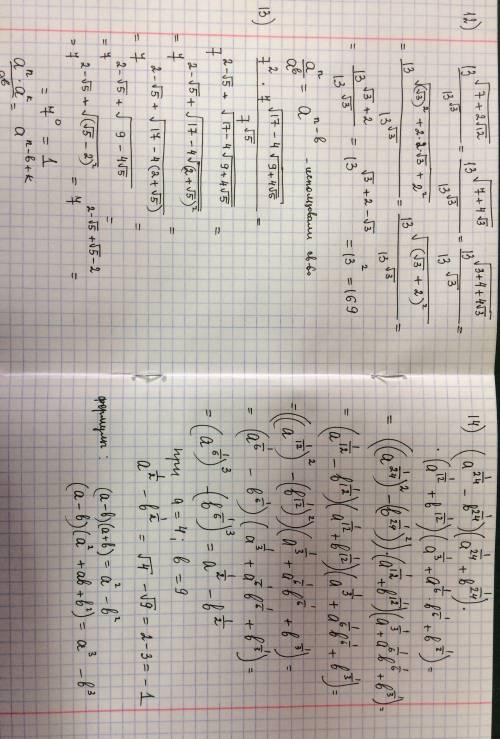 12) 13^√(7+2√12) / 13^√3 = 13^√(7+4√3) / 13^√3 = 13^√(3+4+4√3) / 13^√3 =
= 13^√((√3)²+2·2·√3+2²) / 13^√3 = 13^√((√3+2)²) / 13^√3 =
= 13^(√3+2) / 13^√3 = 13^(√3+2-√3) = 13² = 169
a^n / a^b = a^(n-b) - использовали св-во
13) 7²·7^√(17-4√(9+4√5)) / 7^√5 =
= 7^(2-√5+√(17-4√(9+4√5))) =
= 7^(2-√5+√(17-4√((2+√5)²))) =
= 7^(2-√5+√(17-4(2+√5))) =
= 7^(2-√5+√(9-4√5)) =
= 7^(2-√5+√((√5-2)²)) = 7^(2-√5+√5-2) =
= 7⁰ = 1
a^n·a^k / a^b = a^(n-b+k)
14) (a^(1/24) - b^(1/24))(a^(1/24) + b^(1/24))·
·(a^(1/12) + b^(1/12))(a^(1/3) + a^(1/6)·b^(1/6) + b^(1/3)) =
= ((a^(1/24))² - (b^(1/24))²)·(a^(1/12) + b^(1/12))(a^(1/3) + a^(1/6)b^(1/6) + b^(1/3)) =
= (a^(1/12) - b^(1/12))(a^(1/12) + b^(1/12))(a^(1/3) + a^(1/6)b^(1/6) + b^(1/3)) =
= ((a^(1/12))² - (b^(1/12))²)(a^(1/3) + a^(1/6)b^(1/6) + b^(1/3)) =
= (a^(1/6) - b^(1/6))(a^(1/3) + a^(1/6)b^(1/6) + b^(1/3)) =
= (a^(1/6))³ - (b^(1/6))³ = a^(1/2) - b^(1/2)
при a = 4; b = 9
a^(1/2) - b^(1/2) = √4 - √9 = 2-3 = -1
формулы: (a-b)(a+b) = a² - b²
(a-b)(a² + ab + b²) = a³ - b³